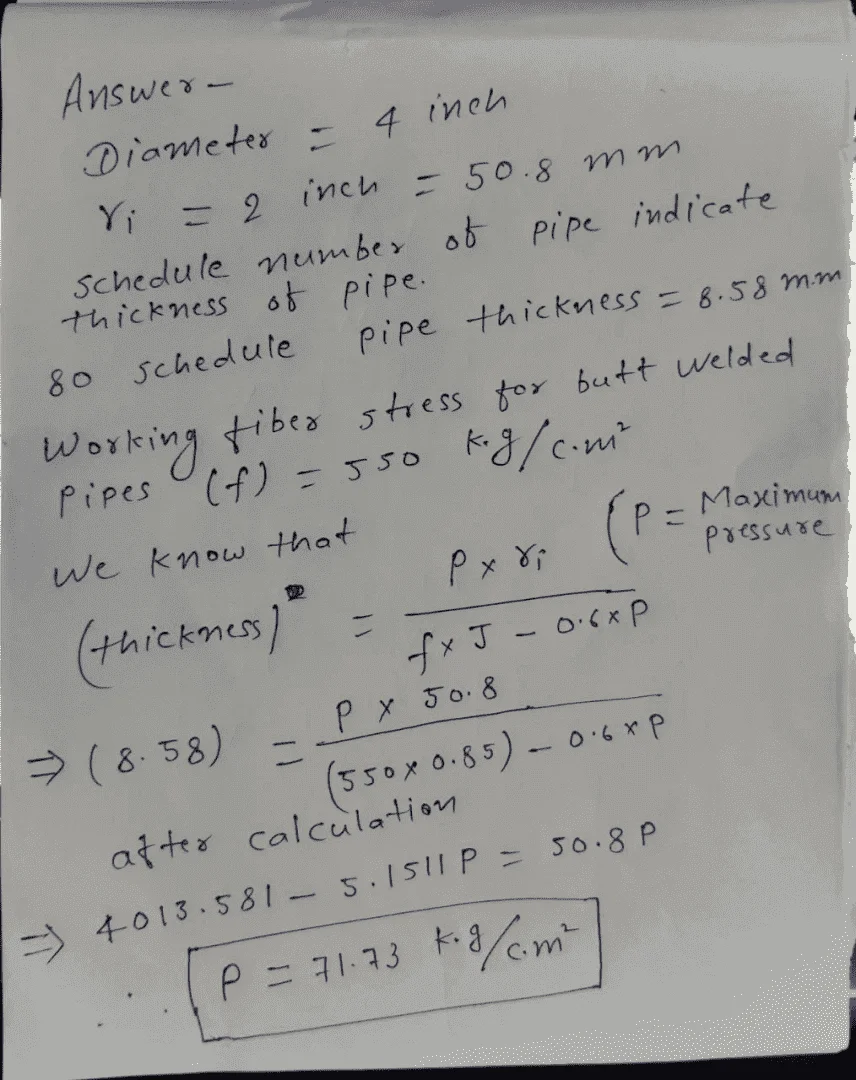 Answer -
Diameter = 4 inch
ri = 2 inch = 50.8 mm
schedule number of pipe indicate
thickness of pipe.
80 schedule pipe thickness = 8.58 m.m
Working fiber stress for butt welded
pipes (f) = 550 k.g/c.m²
We know that (P = Maximum pressure
(thickness) = P x ri / f x J - 0.6 x P
⇒ (8.58) = P x 50.8 / (550 x 0.85) - 0.6 x P
after calculation
⇒ 4013.581 - 5.1511 P = 50.8 P
∴ P = 71.73 k.g/c.m²